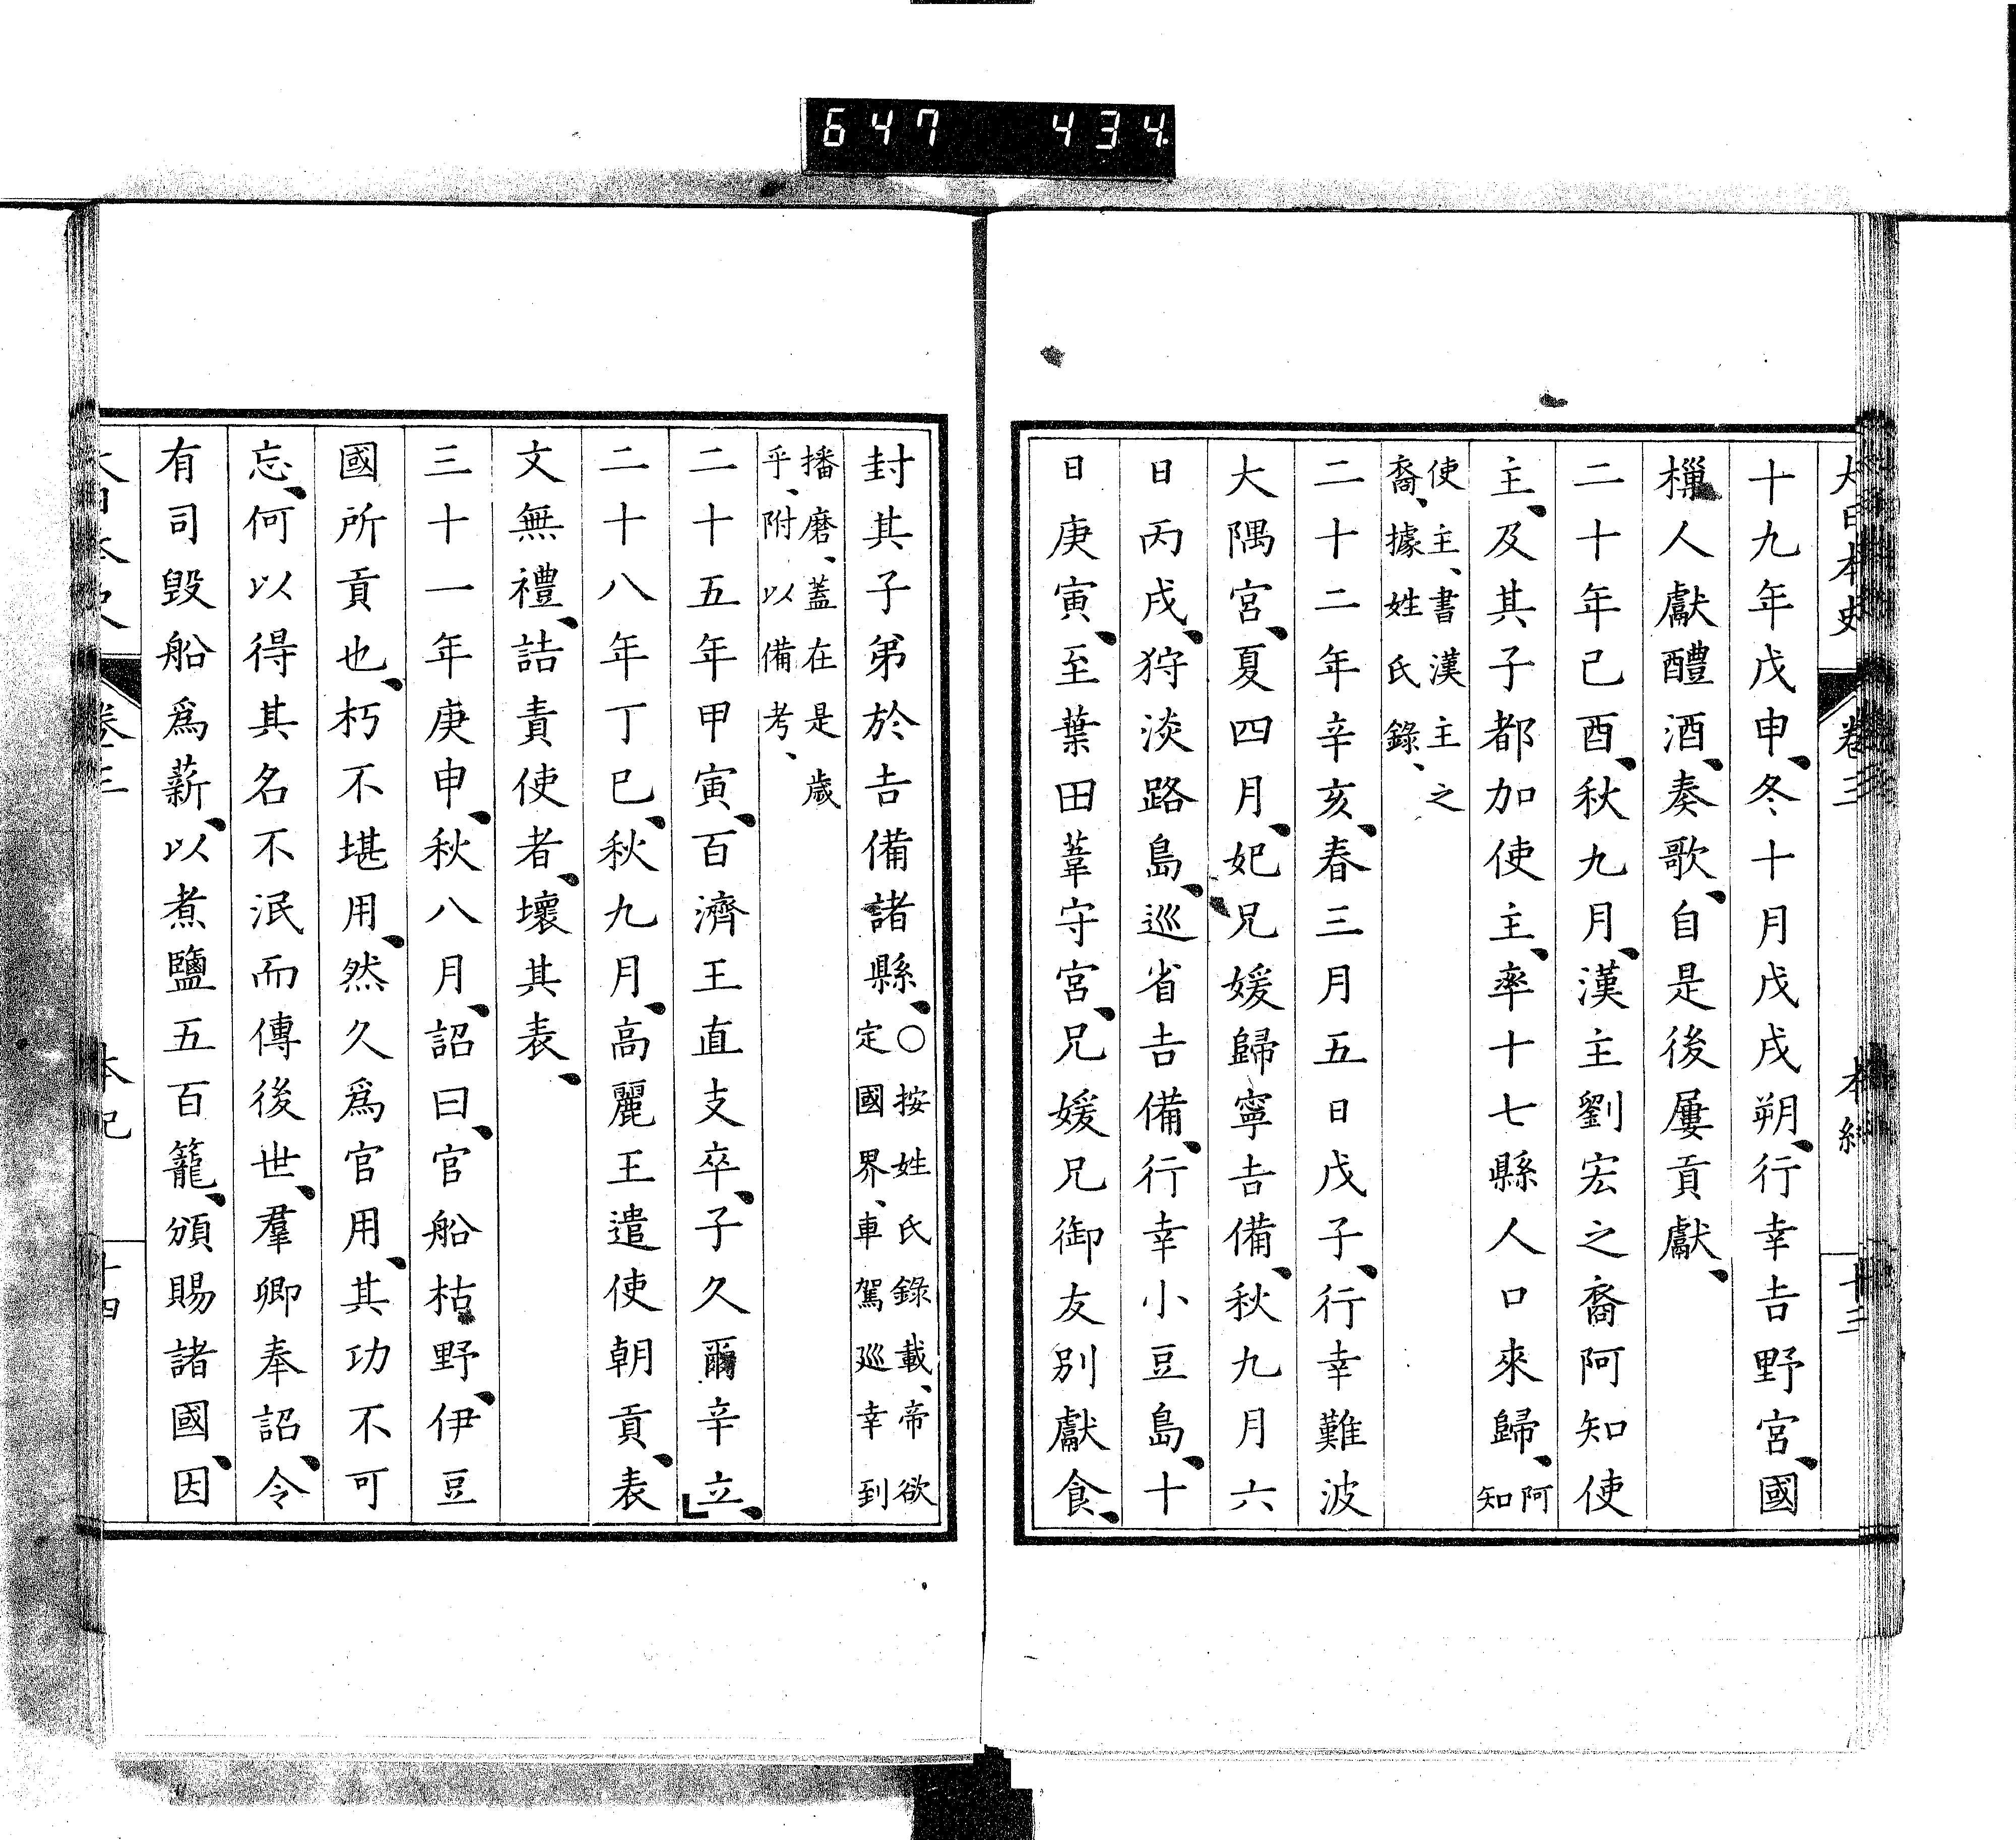 647 434
大日本史 卷三 本紀 十三
十九年戊申、冬十月戊戌朔、行幸吉野宮、國
樔人獻醴酒、奏歌、自是後屢貢獻、
二十年己酉、秋九月、漢主劉宏之裔阿知使
主、及其子都加使主、率十七縣人口來歸、阿知
使主、書漢主之
裔、據姓氏錄、
二十二年辛亥、春三月五日戊子、行幸難波
大隅宮、夏四月、妃兄媛歸寧吉備、秋九月六
日丙戌、狩淡路島、巡省吉備、行幸小豆島、十
日庚寅、至葉田葦守宮、兄媛兄御友別獻食、
封其子弟於吉備諸縣、○按姓氏錄載、帝欲定國界、車駕巡幸到
播磨、蓋在是歲
乎、附以備考、
二十五年甲寅、百濟王直支卒、子久爾辛立、
二十八年丁巳、秋九月、高麗王遣使朝貢、表
文無禮、詰責使者、壞其表、
三十一年庚申、秋八月、詔曰、官船枯野、伊豆
國所貢也、朽不堪用、然久爲官用、其功不可
忘、何以得其名不泯而傳後世、羣卿奉詔、令
有司毀船爲薪、以煮鹽五百籠、頒賜諸國、因
大日本史 卷三 本紀 十四